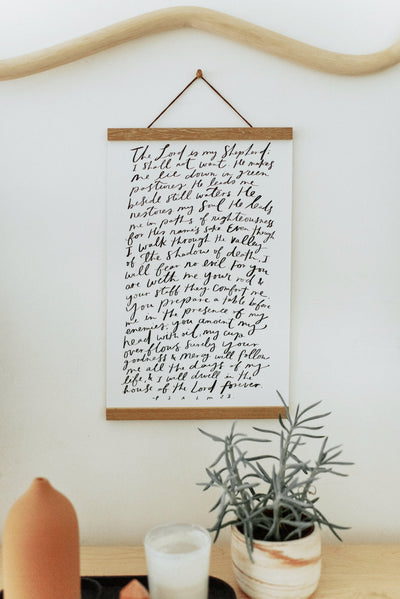 The Lord is my Shepherd.
I shall not want. He makes
me lie down in green
pastures. He leads me
beside still waters. He
restores my soul. He leads
me in paths of righteousness
for His name's sake. Even though
I walk through the valley
of the shadow of death, I
will fear no evil for you
are with me your rod &
your staff they comfort me.
You prepare a table before
me in the presence of my
enemies. you anoint my
head with oil, my cup
overflows surely your
goodness & mercy will follow
me all the days of my
life, & I will dwell in the
house of the Lord forever.
Psalm 23.